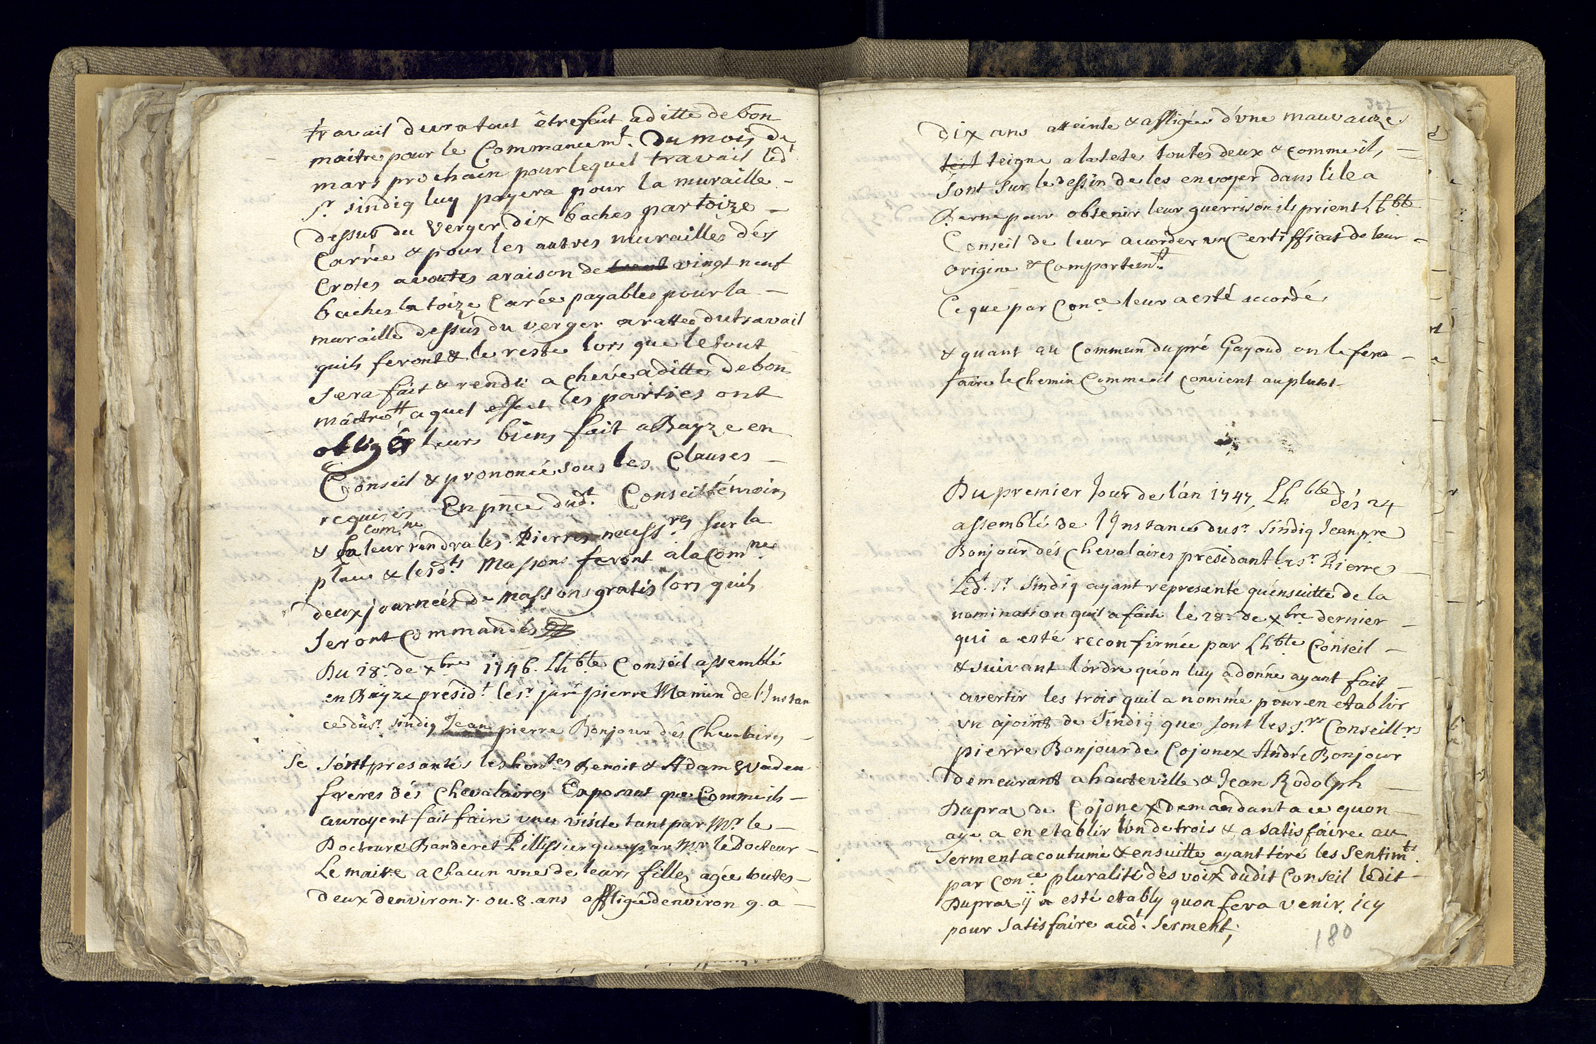 travail devra tout être fait a ditte de bon
maitre pour le Commancemt. Du mois de
mars prochain pour lequel travail led.t
Sr. sindiq luy payera pour la muraille
dessus du verger dix baches par toize
Carrée & pour les autres murailles dés
Crotes avoutes a raison de vingt neuf
baches la toize Carée payables pour la
muraille dessus du verger a rattée du travail
quils feront & le reste lors que le tout
sera fait & rendu achevé a ditte de bon
maitre a quel effect les parties ont
obligé leurs biens fait a Bayze en
Conseil & prononcé sous les Clauses
requises En pñce dud.t Conseil témoin
& la comne leur rendra les Pierres necess.res sur la
place & lesd.ts Massons feront a la Comne
deux journées de massons gratis lors quils
Seront Commandés
Du 28e. de xbre 1746. Lhble Conseil assemblé
en Bayze présid.t le sr. juré pierre Mamin de l'Instan
ce du sr. sindiq Jean pierre Bonjour dés Chevalaires
Se sont presantés les hon.tes Benoit & Adam Vuaden
freres dés Chevalaires Exposant que Comme ils
auroyent fait faire une visite tant par Mr. le
Docteur Banderet Pillissier que par Mr. le Docteur
Le maire a chacun une de leurs filles agée toutes
deux denviron .7. ou .8. ans affligée denviron 9. a
dix ans atteinte & affligée d'une mauvaize
teigne a la teste toutes deux & comme ils
sont sur le dessin de les envoyer dans lile a
Berne pour obtenir leur guerrison ils prient Lhble
Conseil de leur acorder un Certifficat de leur
origine & Comportemt.
Ce que par Conce leur a esté accordé
& quant au Commun du pré Gayoud on le fera
faire le chemin Comme il convient au plutot
Du premier Jour de l'an 1747, Lhble dés 24
assemblé de l'Instance du sr. Sindiq Jean pre
Bonjour dés Chevalaires presidant le sr. Pierre
Led.t Sr. Sindiq ayant representé quensuitte de la
nomination quil a faite le 28e. de xbre dernier
qui a esté reconfirmée par Lhble Conseil
& suivant l'ordre quon luy a donné ayant fait
avertir les trois quil a nommé pour en etablir
un ajoint de Sindiq que sont les srs. Conseill.rs
pierre Bonjour de Cojonex André Bonjour
demeurant a hauteville & Jean Rodolph
Dupraz de Cojonex demandant a ce quon
aye a en etablir lun de trois & a satisfaire au
serment acoutumé & ensuitte ayant tiré les Sentimts.
par Conce pluralité des voix dudit Conseil ledit
Dupraz ÿ a esté etably quon fera venir icy
pour satisfaire aud.t serment;
180